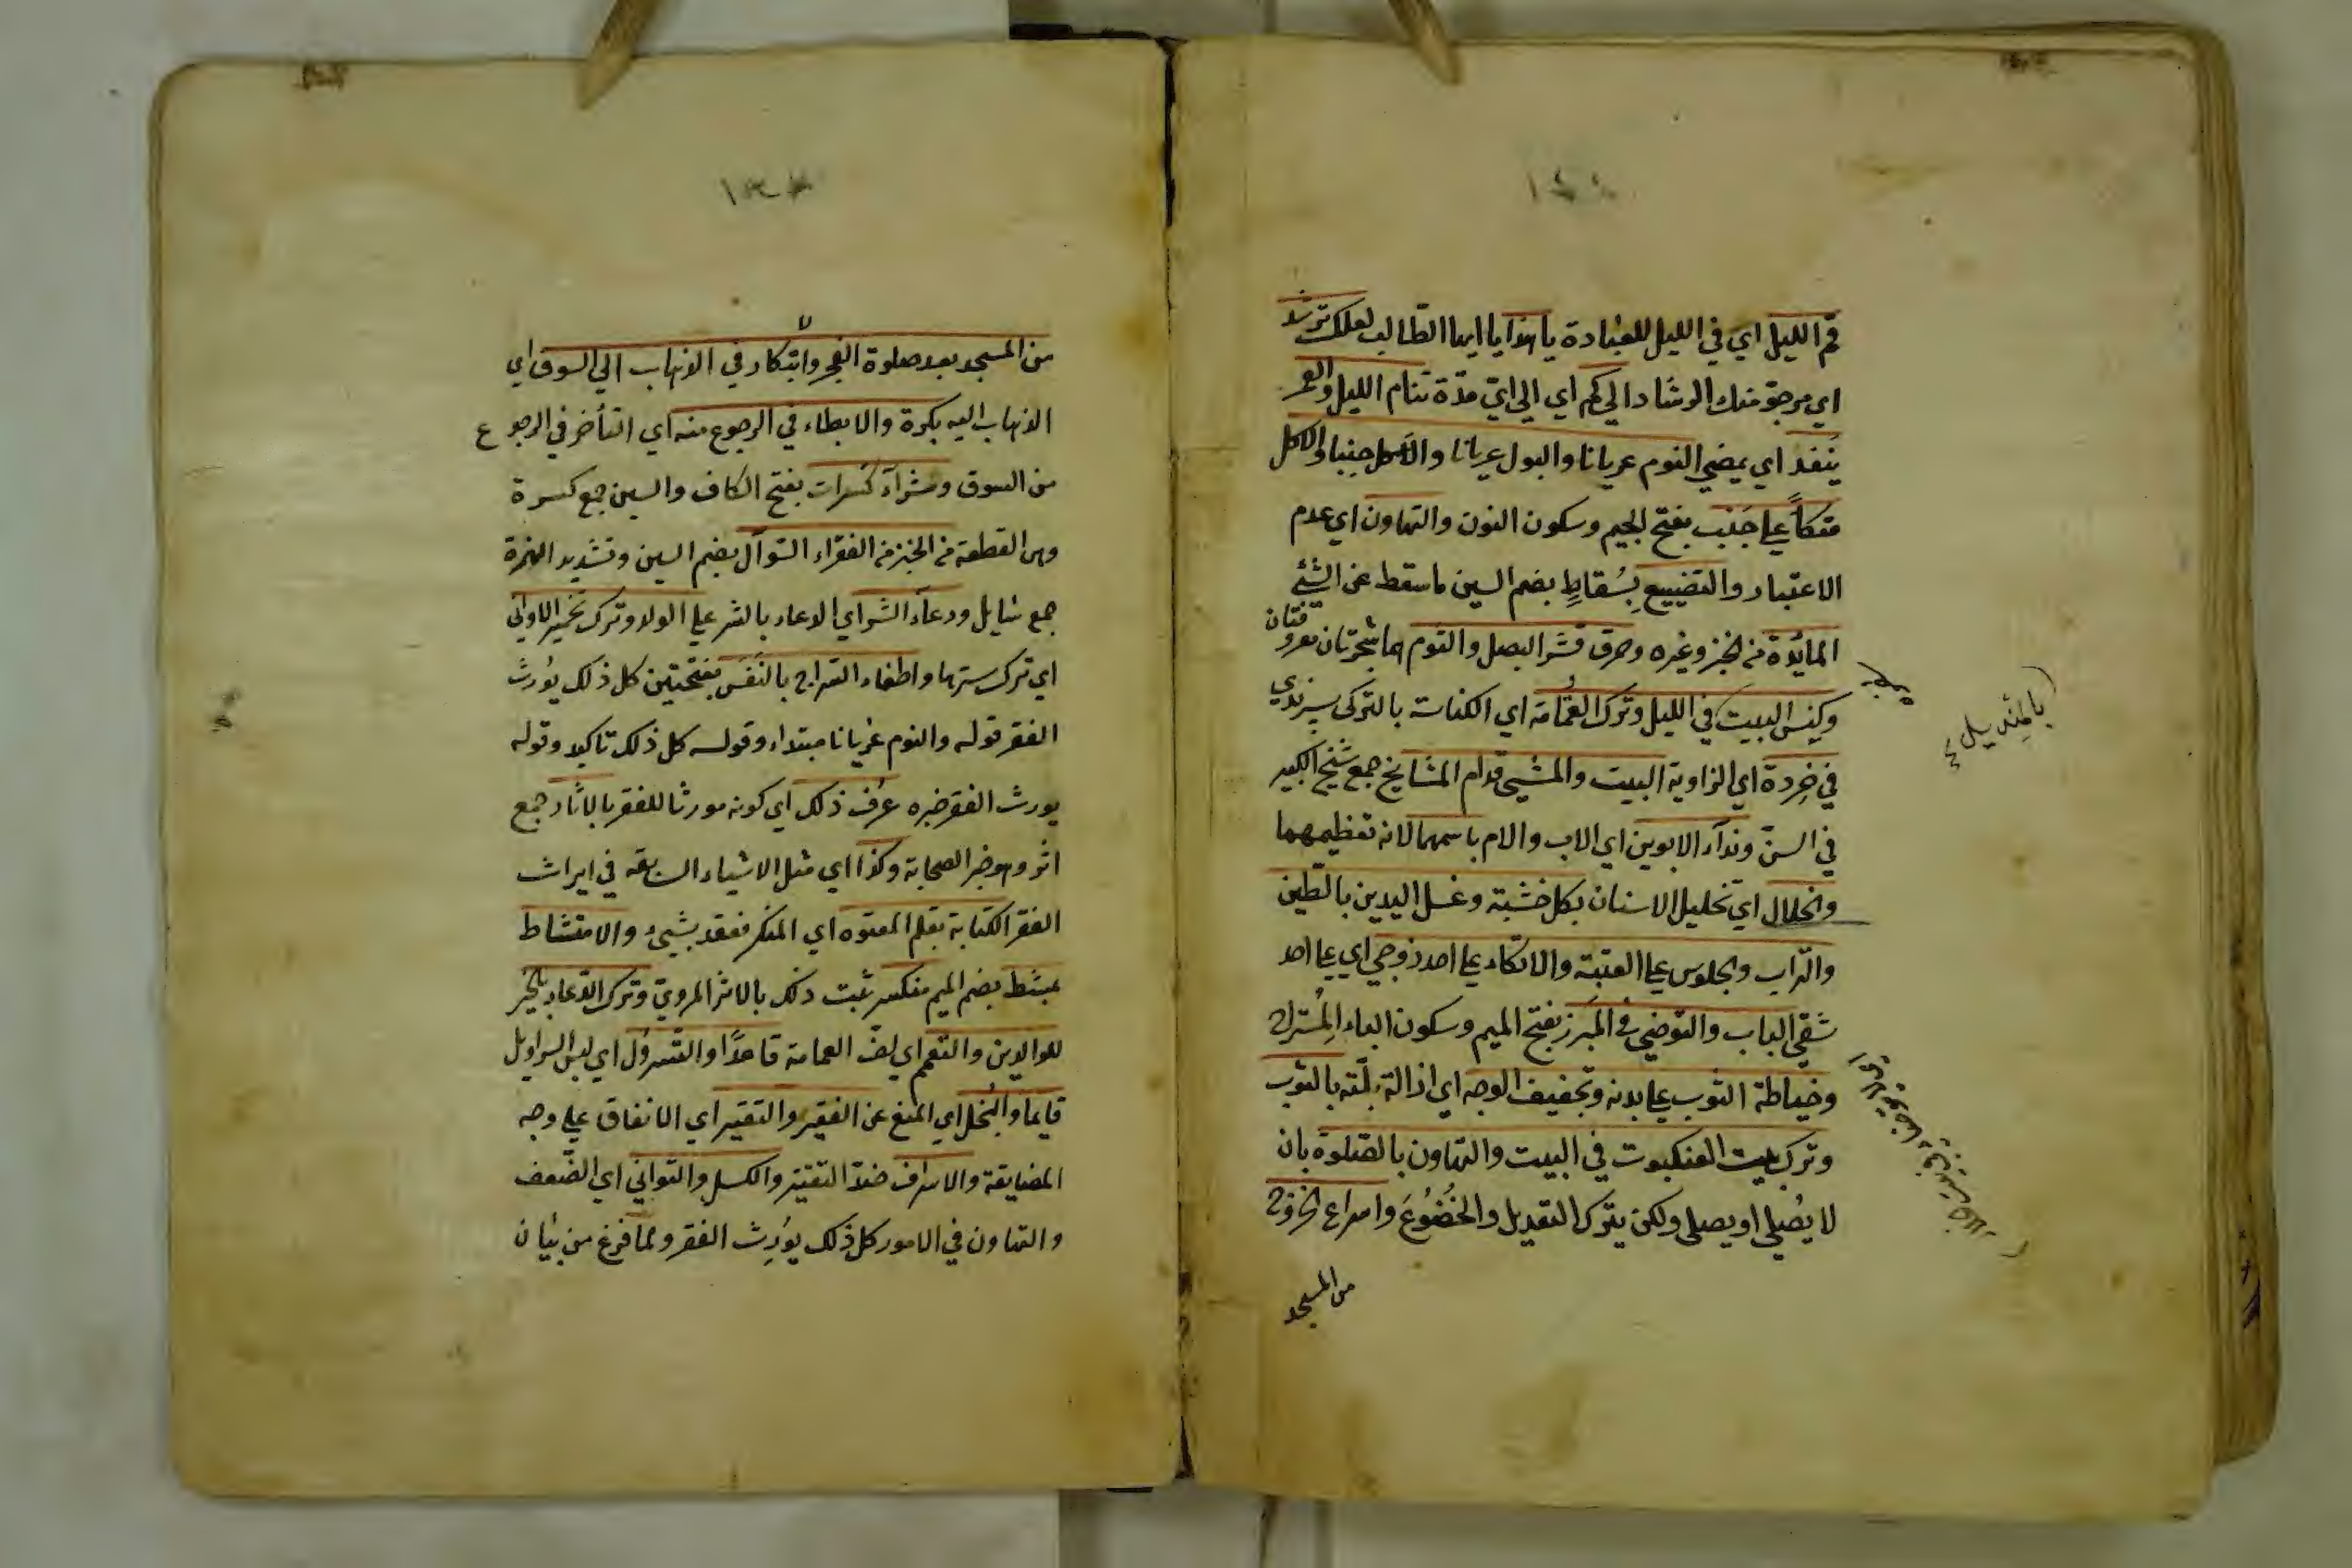 قم الليل اي في الليل للعبادة يا هذا يا ايها الطالب لعلك ترشد
اي مرجو منك الرشاد الي كم اي الي ايّ مدّة تنام الليل والعمر
يَنفَد اي يمضي النوم عريانا والبول عريانا والاكل جنبا والاكل
متكأً علي جَنْب بفتح الجيم وسكون النون والتهاون اي عدم
الاعتبار والتضييع بِسُقاطِ بضم السين ما سقط عن الشيئ
المائدة من الخبز وغيره وحرق قشر البصل والثوم هما شجرتان معروفتان
وكنس البيت في الليل وترك القُمَامَة اي الكناسة بالتركي سپرندي
في خردة اي الزاوية البيت والمشي قدام المشايخ جمع شيخ الكبير
في السنّ ونداء الابوين اي الاب والام باسمهما لانه تعظيمهما
والخلال اي تخليل الاسنان بكل خشبة وغسل اليدين بالطين
والتراب والجلوس علي العتبة والاتكاء علي احد زوجي اي علي احد
شقي الباب والتوضي في المَبرز بفتح الميم وسكون الباء المُستراح
وخياطة الثوب علي بدنه وتجفيف الوجه اي ازالة بلّته بالثوب
وترك بيت العنكبوت في البيت والتهاون بالصلوة بان
لا يُصلي او يصلي ولكن يترك التعديل والخُضُوعَ واسراع الخروج
من المسجد
بالمِنْديل
من المسجد بعد صلوة الفجر وابتكار في الذهاب الي السوق اي
الذهاب اليه بكرة والابطاء في الرجوع منه اي التأخر في الرجوع
من السوق وشراء كَسَرات بفتح الكاف والسين جمع كسرة
وهي القطعة من الخبز من الفقراء السّوآل بضم السين وتشديد الهمزة
جمع سايل ودعاء الشر اي الدعاء بالشر علي الولد وترك تخمير الاواني
اي ترك سترها واطفاء السراج بالنَفَس بفتحتين كل ذلك يُورث
الفقر قوله والنوم عريانا مبتداء وقوله كل ذلك تاكيد وقوله
يورث الفقر خبره عُرف ذلك اي كونه مورثا للفقر بالاثار جمع
اثر وهو خبر الصحابة وكذا اي مثل الاشياء السابقة في ايراث
الفقر الكتابة بقلم المعقود اي المنكر فعقد بشيئ والامتشاط
بمشط بضم الميم منكسر ثبت ذلك بالاثر المروي وترك الدّعاء بالخير
للوالدين والتعمم اي لفّ العمامة قاعدًا والتَّسَرْوُل اي لبس السراويل
قايما والبُخل اي المنع عن الفقير والتقتير اي الانفاق علي وجه
المضايقة والاسراف ضدّ التقتير والكسل والتواني اي الضّعف
والتهاون في الامور كل ذلك يُورِث الفقر ولما فرغ من بيان